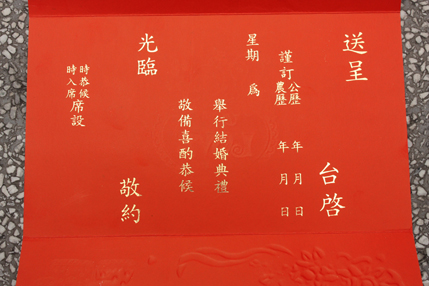 送呈
台啓
謹訂
公歷 年 月 日
農歷 年 月 日
星期 爲
舉行結婚典禮
敬備喜酌恭候
光臨
敬約
席設
時恭候
時入席